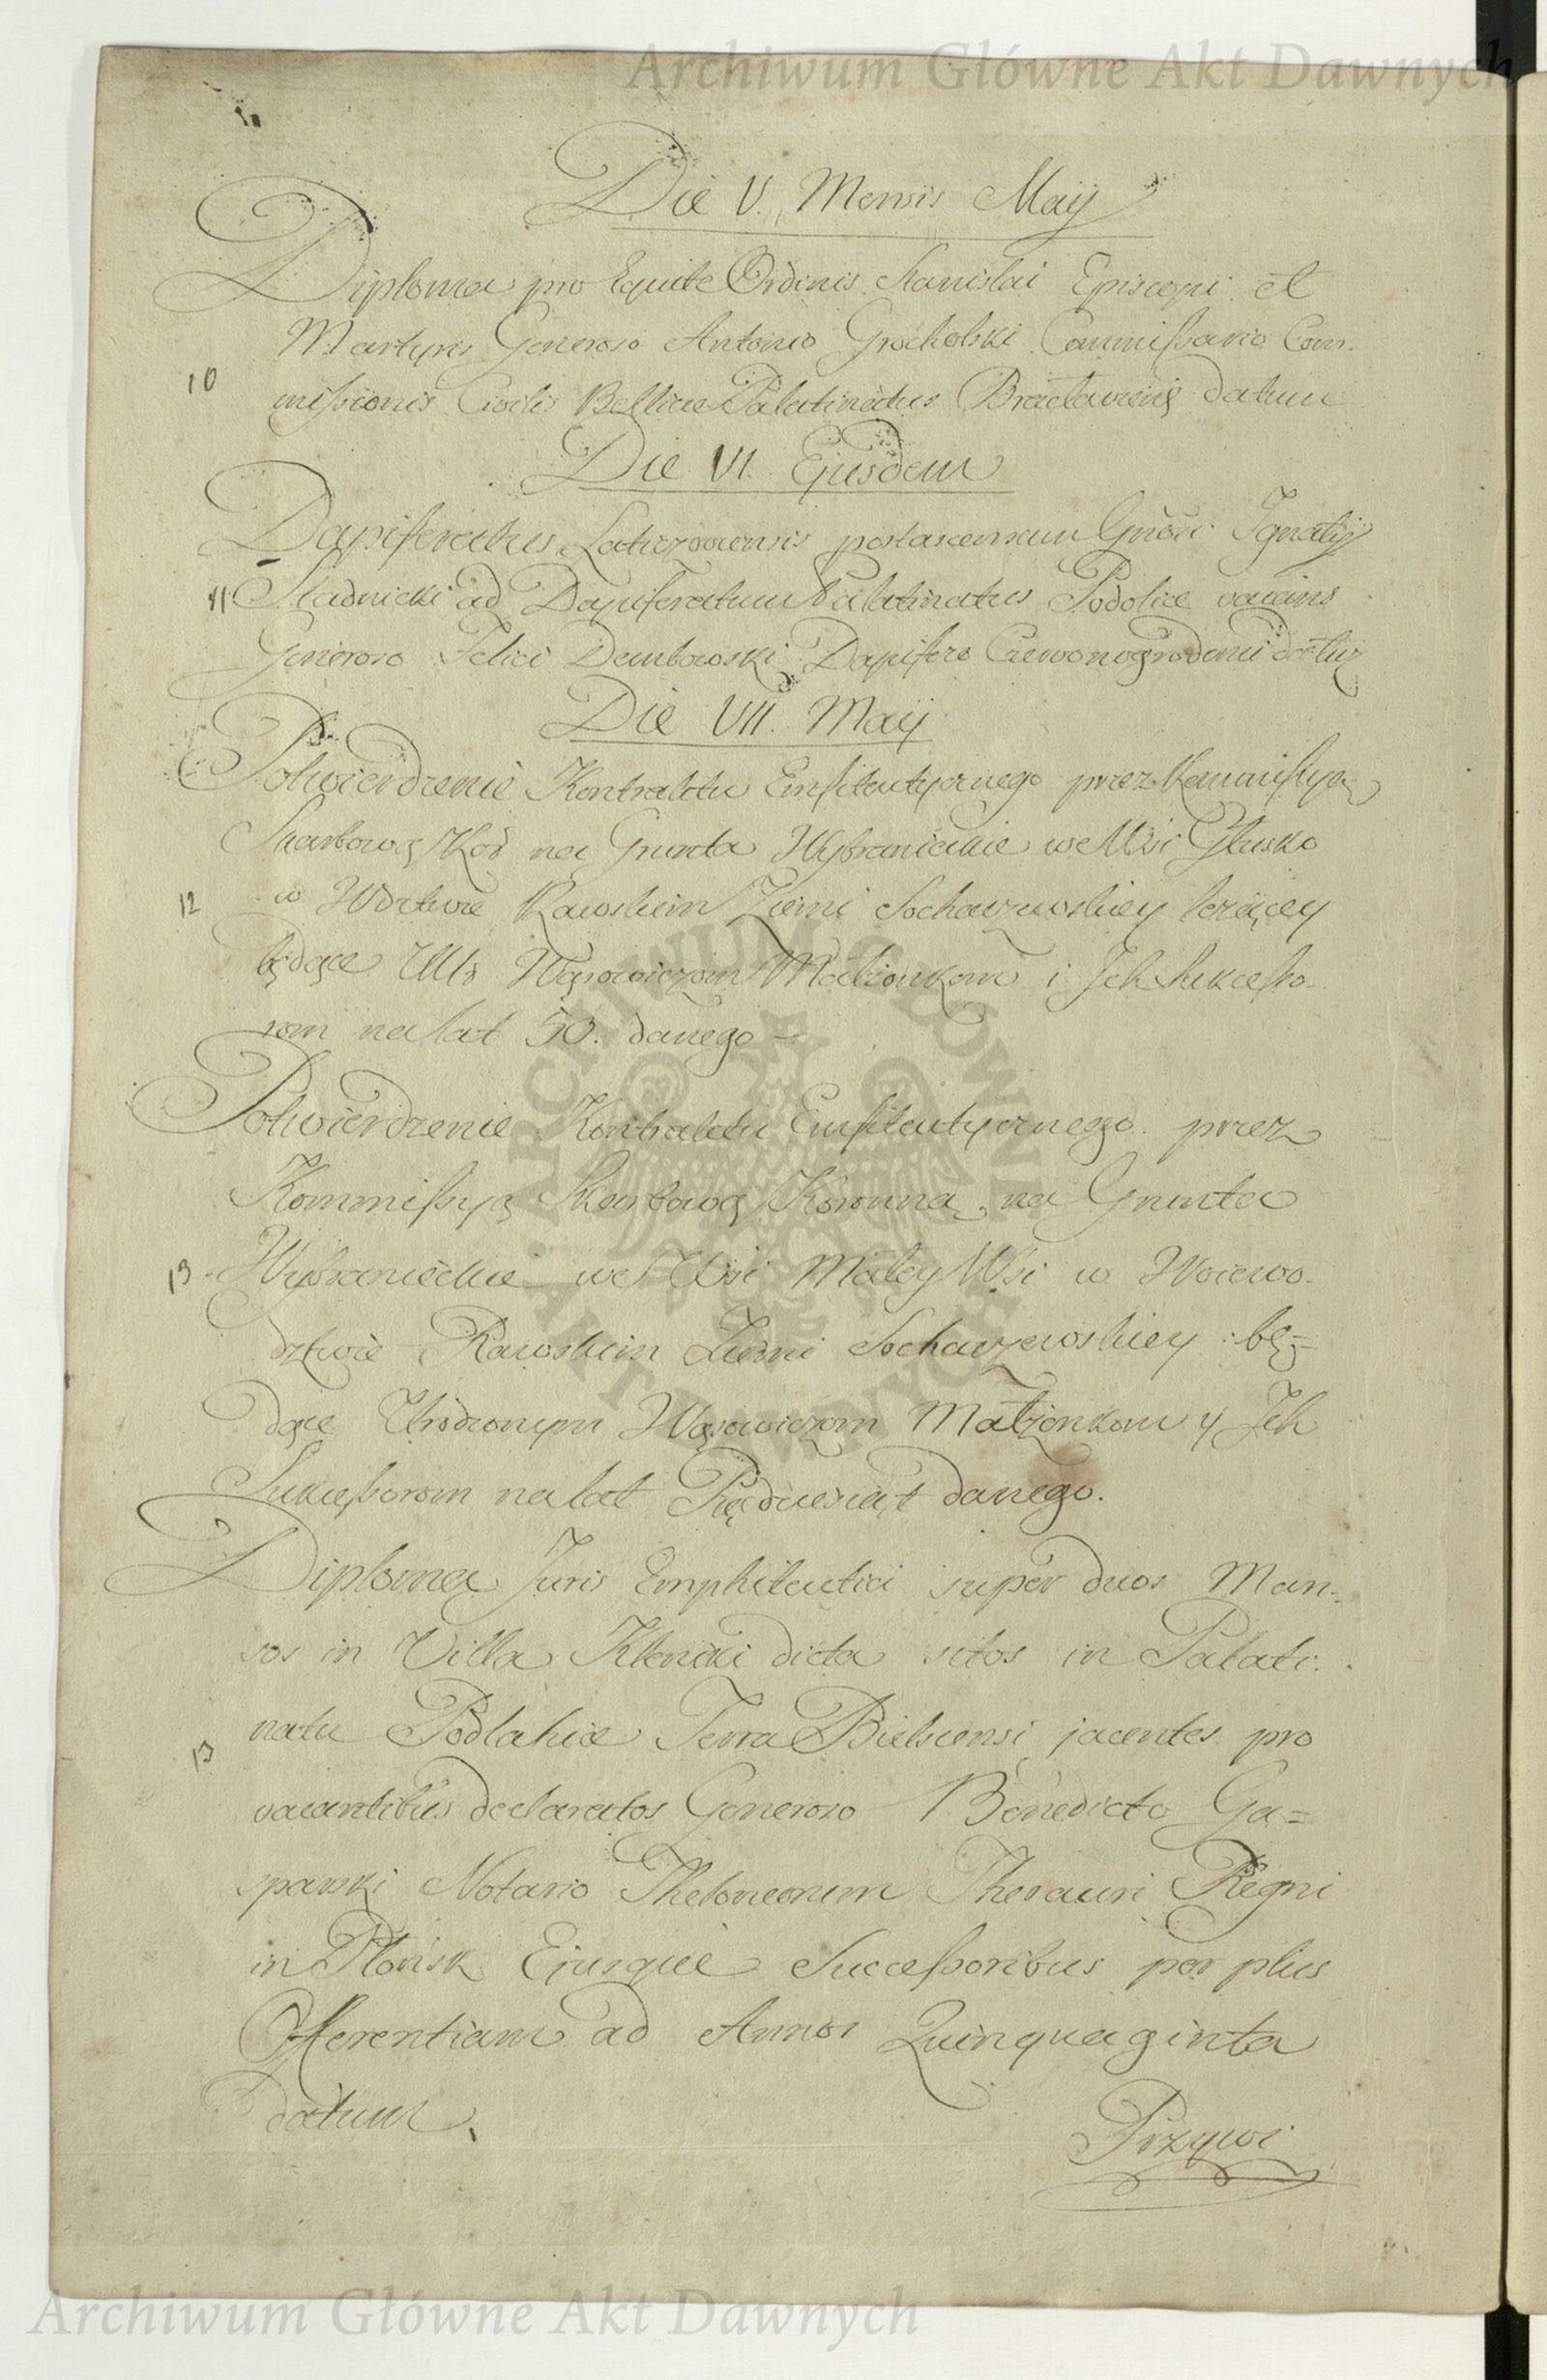 Archiwum Główne Akt Dawnych
Die V. Mensis Maij
Diploma pro Equite Ordinis Stanislai Episcopi et
Martyris Generoso Antonio Grocholski Commissario Com-
10 missionis Civilis Bellicae Palatinatus Bracłaviensis datum
Die VI. Ejusdem
Dapiferatus Laticzoviensis post ascensum Gnosi Ignatij
11 Stadnicki ad Dapiferatum Palatinatus Podoliae vacans
Generoso Felici Dembowski Dapifero Czerwonogrodensi
Die VII. Maij
Potwierdzenie Kontraktu Emfiteutycznego przez Kommissyą
Skarbową Kor na Grunta Wybranieckie we Wsi Głusko
12 w Wdztwie Rawskim Ziemi Sochaczewskiey leżącey
będące Wąsowiczom Małżonkom i Jch Sukcesso-
rom na lat 50. danego
Potwierdzenie Kontraktu Emfiteutycznego przez
Kommissyą Skarbową Koronną na Grunta
13 Wybranieckie we Wsi Małey Wsi w Woiewo-
dztwie Rawskim Ziemi Sochaczewskiey bę-
dące Urodzonym Wąsowiczom Małżonkom y Jch
Sukcessorom na lat Pięćdziesiąt danego.
Diploma Juris Emphiteutici super duos Man-
sos in Villa Kleniki dicta sitos in Palati-
13 natu Podlahiae Terra Bielscensi jacentes pro
vacantibus declaratos Generoso Benedicto Ga=
sparski Notario Theloneorum Thesauri Regni
in Płońsk Ejusque Successoribus per plus
Offerentiam ad Annos Quinquaginta
datum.
Przywi
ARCHIWUM GŁÓWNE AKT DAWNYCH
Archiwum Główne Akt Dawnych